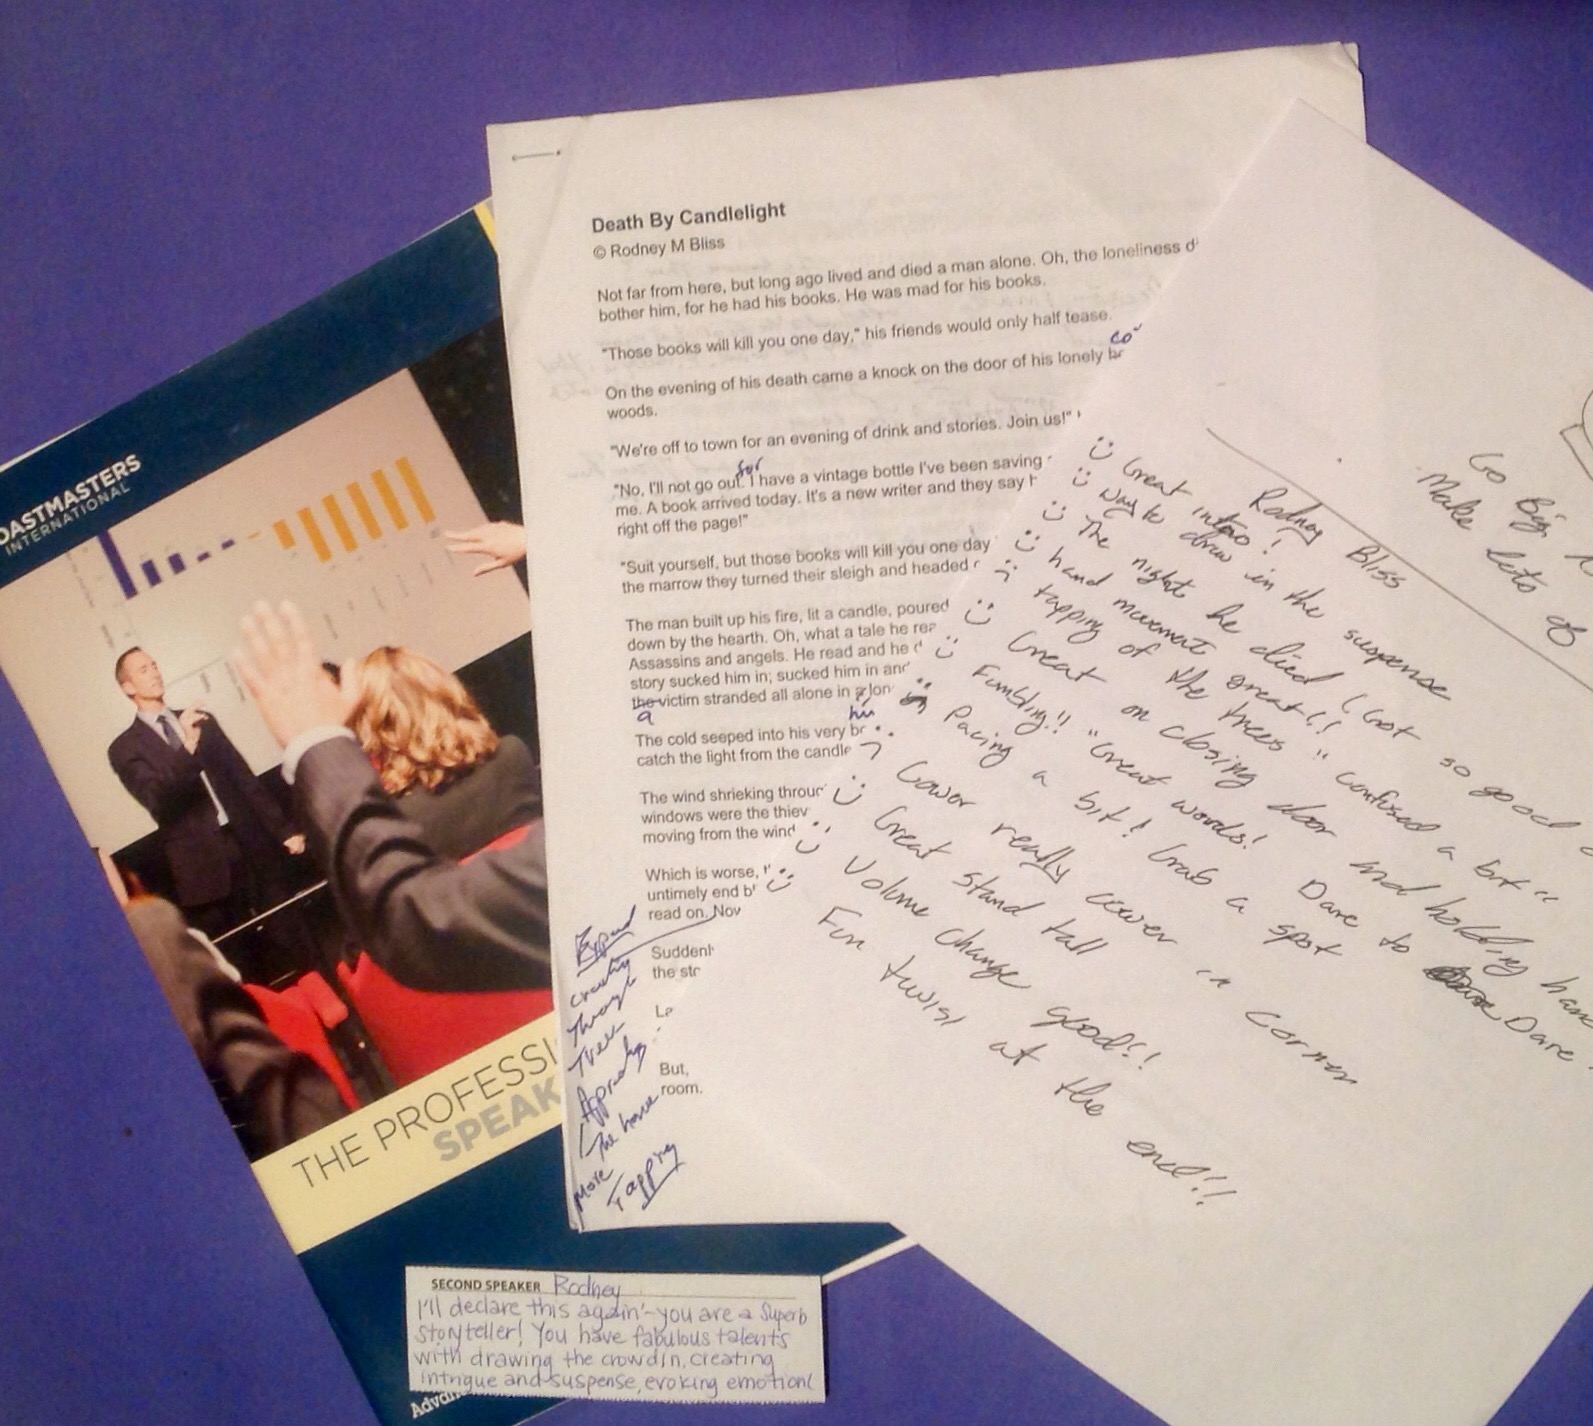 OASTMASTERS
INTERNATIONAL
THE PROFESSI
SPEAK
Death By Candlelight
© Rodney M Bliss
Not far from here, but long ago lived and died a man alone. Oh, the loneliness d
bother him, for he had his books. He was mad for his books.
"Those books will kill you one day," his friends would only half tease.
co
On the evening of his death came a knock on the door of his lonely
woods.
"We're off to town for an evening of drink and stories. Join us!"
for
"No, I'll not go out. I have a vintage bottle I've been saving
me. A book arrived today. It's a new writer and they say
right off the page!"
"Suit yourself, but those books will kill you one day
the marrow they turned their sleigh and headed
The man built up his fire, lit a candle, poured
down by the hearth. Oh, what a tale he rea
Assassins and angels. He read and he
story sucked him in; sucked him in and
the victim stranded all alone in a lon
a
his
The cold seeped into his very b
catch the light from the candle
The wind shrieking throu
windows were the thiev
moving from the wind
Which is worse,
untimely end b
read on. Nov
Suddenl
the stc
La
But,
room.
Expand
Crashing
Through
Trees
Approaching
The house
More
Tapping
Go Big
Make lots of
Rodney Bliss
Great intro!
Way to draw in the suspense
The night he died (Got so good
hand movement great!!
tapping of the trees "confused a bit"
Great on closing door and holding han
Fumbling!! "Great words!
Pacing a bit! Grab a spot Dare to Dare
Cower really cower in corner
Great stand tall
Volume change good!!
Fun twist at the end!!
SECOND SPEAKER Rodney
I'll declare this again-you are a superb
storyteller! You have fabulous talents
with drawing the crowd in, creating
intrigue and suspense, evoking emotion!
Advan